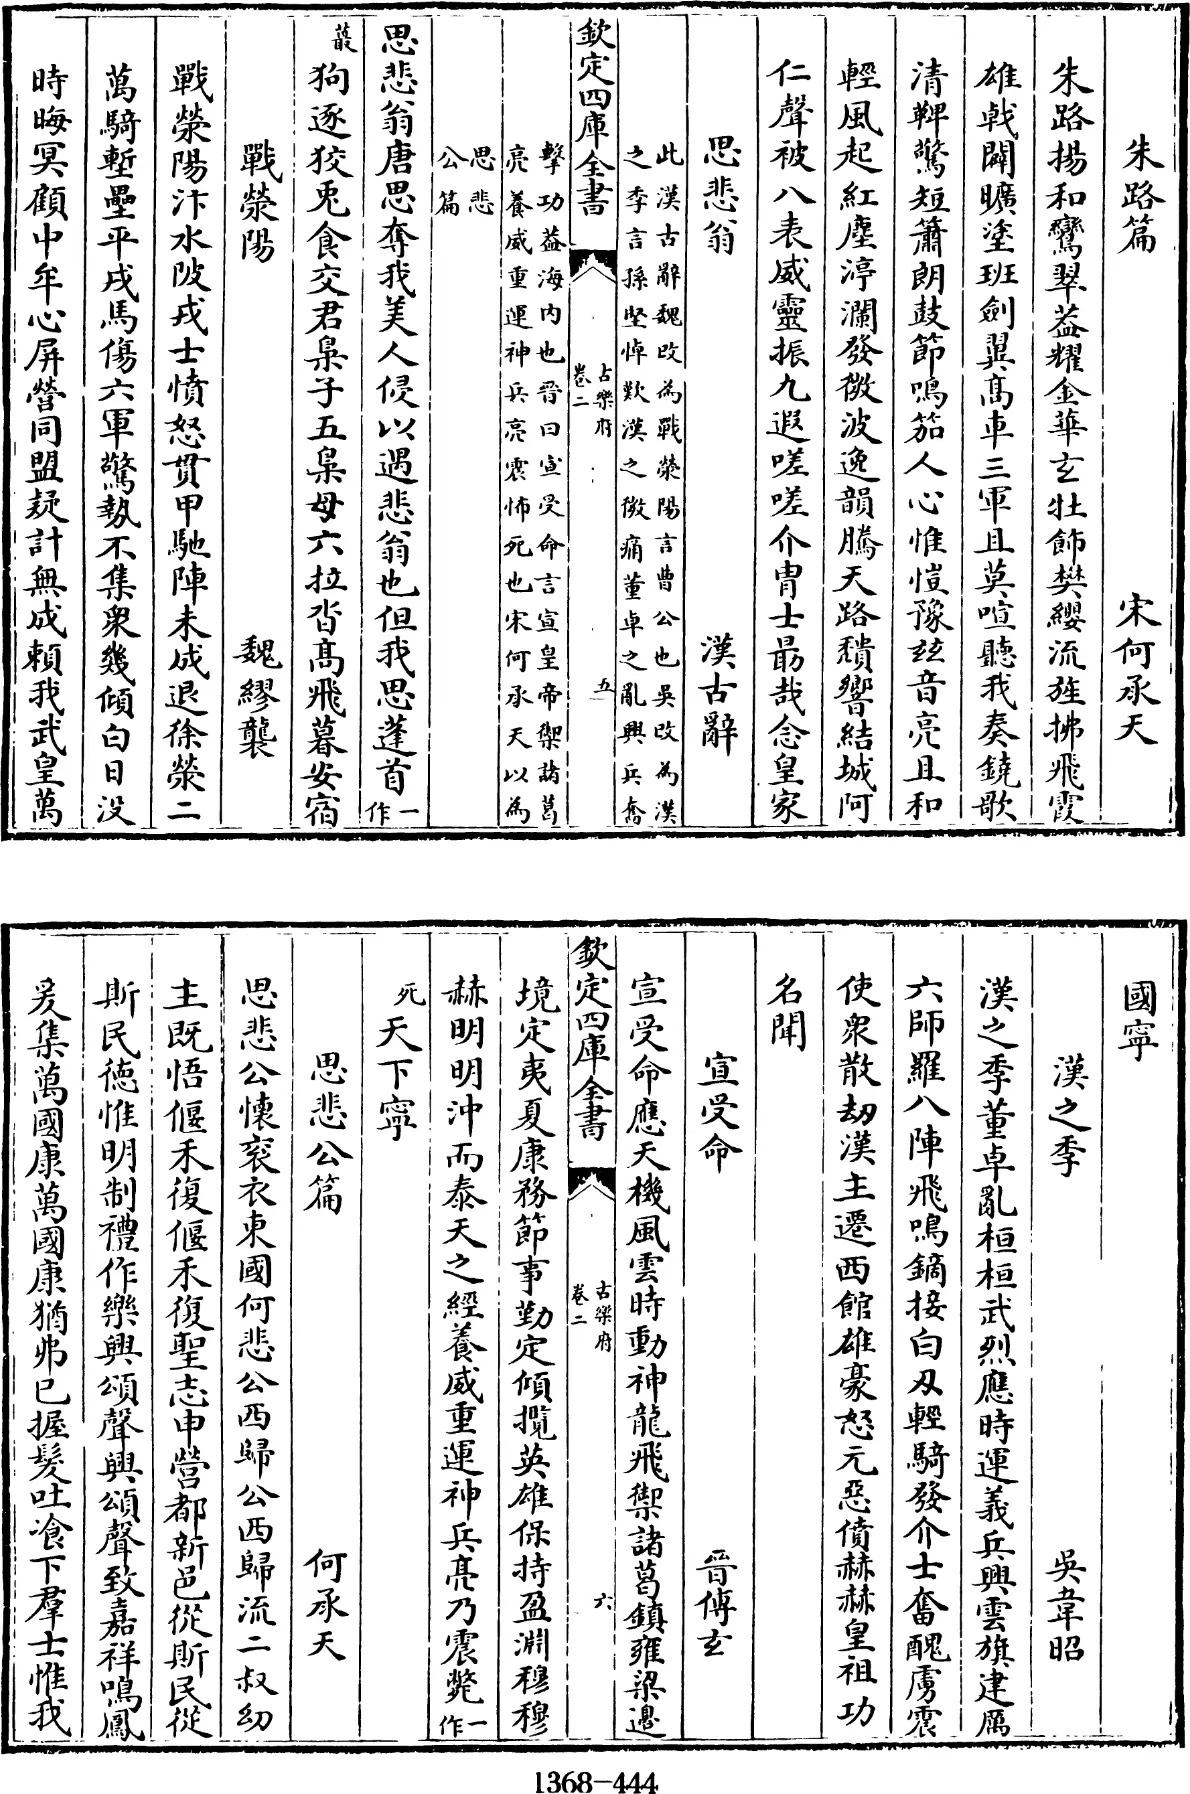 朱路篇　宋何承天
朱路揚和鸞翠葢耀金華玄牡飾樊纓流旌拂飛霞
雄戟闢曠塗班劍翼髙車三軍且莫喧聽我奏鐃歌
清鞞驚短簫朗鼓節鳴笳人心惟愷豫兹音亮且和
輕風起紅塵渟瀾發微波逸韻騰天路頽響結城阿
仁聲被八表威靈振九遐嗟嗟介胄士朂哉念皇家
思悲翁　漢古辭
此漢古辭魏改為戰滎陽言曹公也吳改為漢
之季言孫堅悼歎漢之微痛董卓之亂興兵奮
欽定四庫全書
古樂府
卷二
五
擊功葢海内也晉曰宣受命言宣皇帝禦諸葛
亮養威重運神兵亮震怖死也宋何承天以為
思悲
公篇
思悲翁唐思奪我美人侵以遇悲翁也但我思蓬首一作
蕞狗逐狡兎食交君梟子五梟母六拉沓髙飛暮安宿
戰滎陽　魏繆襲
戰滎陽汴水陂戎士憤怒貫甲馳陣未成退徐滎二
萬騎塹壘平戎馬傷六軍驚執不集衆幾傾白日没
時晦冥顧中牟心屏營同盟疑計無成賴我武皇萬
國寧
漢之季　吳韋昭
漢之季董卓亂桓桓武烈應時運義兵興雲旗建厲
六師羅八陣飛鳴鏑接白刄輕騎發介士奮醜虜震
使衆散刼漢主遷西館雄豪怒元惡僨赫赫皇祖功
名聞
宣受命　晉傅玄
宣受命應天機風雲時動神龍飛禦諸葛鎮雍梁邊
欽定四庫全書
古樂府
卷二
六
境定夷夏康務節事勤定傾攬英雄保持盈淵穆穆
赫明明沖而泰天之經養威重運神兵亮乃震斃一作
死天下寧
思悲公篇　何承天
思悲公懷袞衣東國何悲公西歸公西歸流二叔幼
主既悟偃禾復偃禾復聖志申營都新邑從斯民從
斯民德惟明制禮作樂興頌聲興頌聲致嘉祥鳴鳳
爰集萬國康萬國康猶弗已握髪吐飡下羣士惟我
1368-444